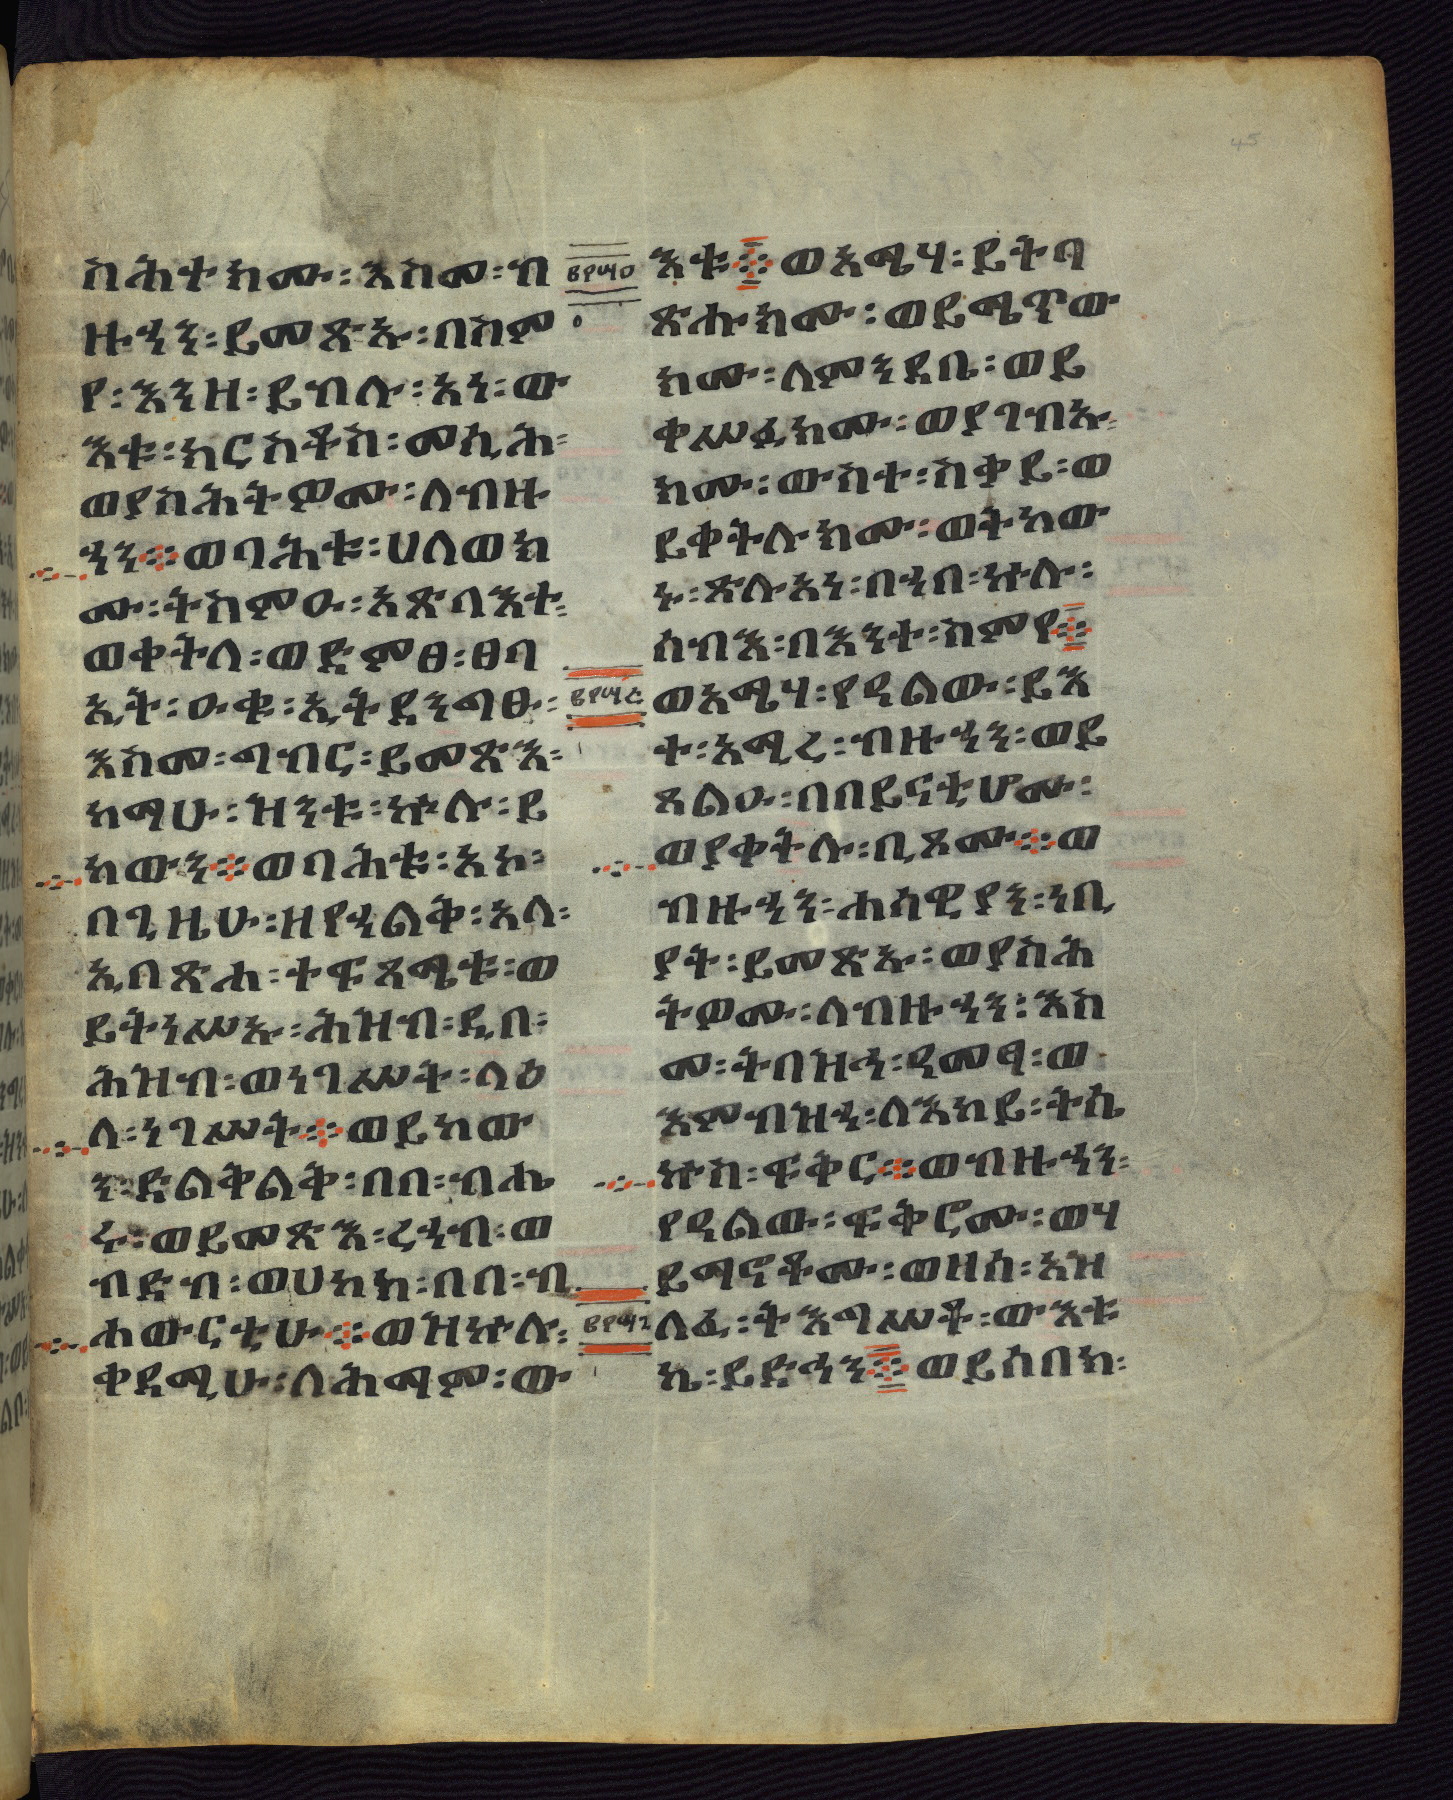 ስሕተክሙ፡እስመ፡ብ
ዙኃን፡ይመጽኡ፡በስም
የ፡እንዘ፡ይብሉ፡አነ፡ው
እቱ፡ክርስቶስ፡መሲሕ፡
ወያስሕትዎሙ፡ለብዙ
ኃን፨ወባሕቱ፡ሀለወክ
ሙ፡ትስምዑ፡አጽባእተ፡
ወቀትለ፡ወድምፀ፡ፀባ
ኢት፡ዑቁ፡ኢትደንግፁ፡
እስመ፡ግብር፡ይመጽእ፡
ከማሁ፡ዝንቱ፡ኵሉ፡ይ
ከውን፨ወባሕቱ፡አኮ፡
በጊዜሁ፡ዘየኃልቅ፡አላ፡
ኢበጽሐ፡ተፍጻሜቱ፡ወ
ይትነሥኡ፡ሕዝብ፡ዲበ፡
ሕዝብ፡ወነገሥት፡ላዕ
ለ፡ነገሥት፨ወይከው
ን፡ድልቅልቅ፡በበ፡ብሔ
ሩ፡ወይመጽእ፡ረኃብ፡ወ
ብድብ፡ወሀከክ፡በበ፡ብ
ሐውርቲሁ፨ወዝኵሉ፡
ቀዳሚሁ፡ለሕማም፡ው
፪፻፵፬
እቱ፨ወአሜሃ፡ይትባ
ጽሑክሙ፡ወይሜጥው
ክሙ፡ለምንዳቤ፡ወይ
ቀሥፉክሙ፡ወያገብኡ
ክሙ፡ውስተ፡ስቃይ፡ወ
ይቀትሉክሙ፡ወትከው
ኑ፡ጽሉአነ፡በኀበ፡ኵሉ፡
ሰብእ፡በእንተ፡ስምየ፨
፪፻፵፭
ወአሜሃ፡የዓልው፡ይእ
ተ፡አሚረ፡ብዙኃን፡ወይ
ጻልዑ፡በበይናቲሆሙ፡
ወያቀትሉ፡ቢጾሙ፨ወ
ብዙኃን፡ሐሳዊያን፡ነቢ
ያት፡ይመጽኡ፡ወያስሕ
ትዎሙ፡ለብዙኃን፡እስ
መ፡ትበዝኃ፡ዓመፃ፡ወ
እምብዝኃ፡ለእከይ፡ትሴ
ኵስ፡ፍቅር፨ወብዙኃን፡
የዓልው፡ፍቅሮሙ፡ወሃ
ይማኖቶሙ፡ወዘሰ፡አዝ
፪፻፵፮
ለፈ፡ትእግሥቶ፡ውእቱ
ኬ፡ይድኃን፨ወይሰበክ፡